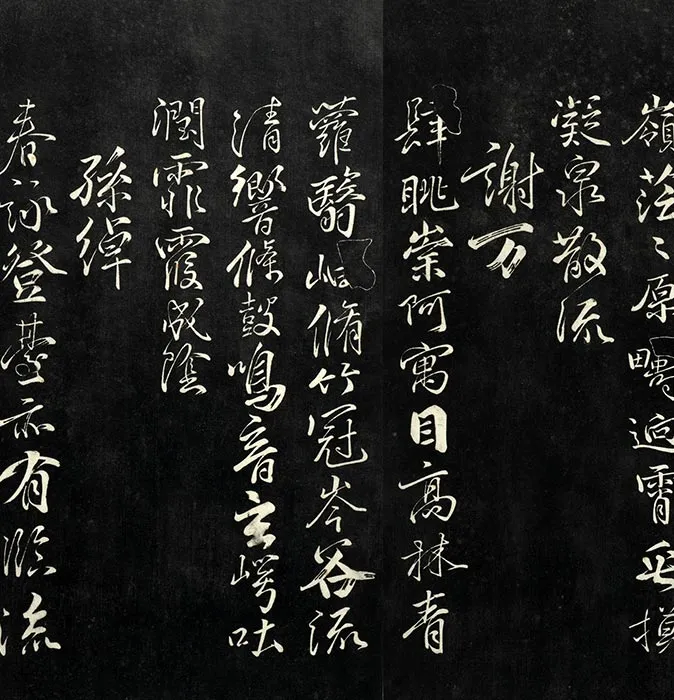 嶺茫〻原疇逈霄垂
凝泉散流
謝万
肆眺崇阿寓目高林青
蘿翳岫脩竹冠岑谷流
清響條鼓鳴音玄崿吐
潤霏霞成陰
孫綽
春詠登臺亦有臨流